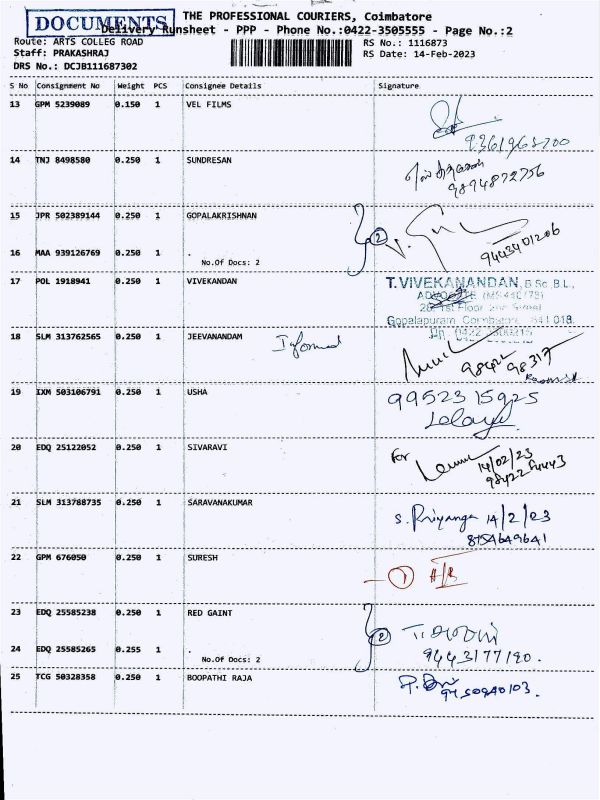 DOCUMENTS
THE PROFESSIONAL COURIERS, Coimbatore
Delivery Runsheet - PPP - Phone No.:0422-3505555 - Page No.:2
Route: ARTS COLLEG ROAD RS No.: 1116873
Staff: PRAKASHRAJ RS Date: 14-Feb-2023
DRS No.: DCJB111687302
S No Consignment No Weight PCS Consignee Details Signature
13 GPM 5239089 0.150 1 VEL FILMS
14 TNJ 8498580 0.250 1 SUNDRESAN
9894872756
15 JPR 502389144 0.250 1 GOPALAKRISHNAN
2
9443401206
16 MAA 939126769 0.250 1 .
No.Of Docs: 2
17 POL 1918941 0.250 1 VIVEKANDAN
T.VIVEKANANDAN, B.Sc.,B.L.,
ADVOCATE
Gopalapuram, Coimbatore 641 018.
18 SLM 313762565 0.250 1 JEEVANANDAM Informed
98422 98317
19 IXM 503106791 0.250 1 USHA
9952315925
20 EDQ 25122052 0.250 1 SIVARAVI
For
14/02/23
21 SLM 313788735 0.250 1 SARAVANAKUMAR
S. Priyanga 14/2/23
8754649641
22 GPM 676050 0.250 1 SURESH
1
23 EDQ 25585238 0.250 1 RED GAINT
2
24 EDQ 25585265 0.255 1 .
No.Of Docs: 2
9443177190.
25 TCG 50328358 0.250 1 BOOPATHI RAJA